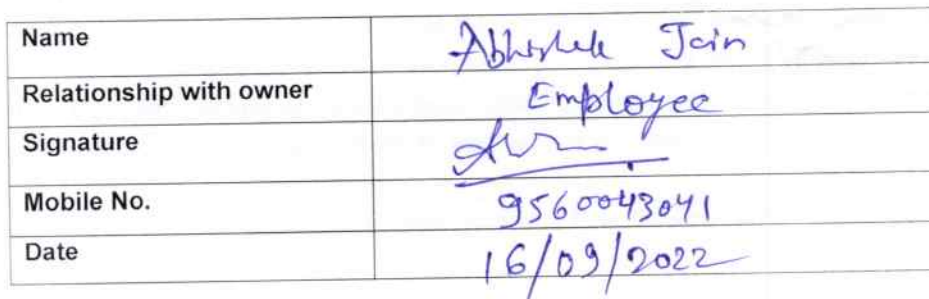 Name Abhishek Jain
Relationship with owner Employee
Signature
Mobile No. 9560043041
Date 16/09/2022